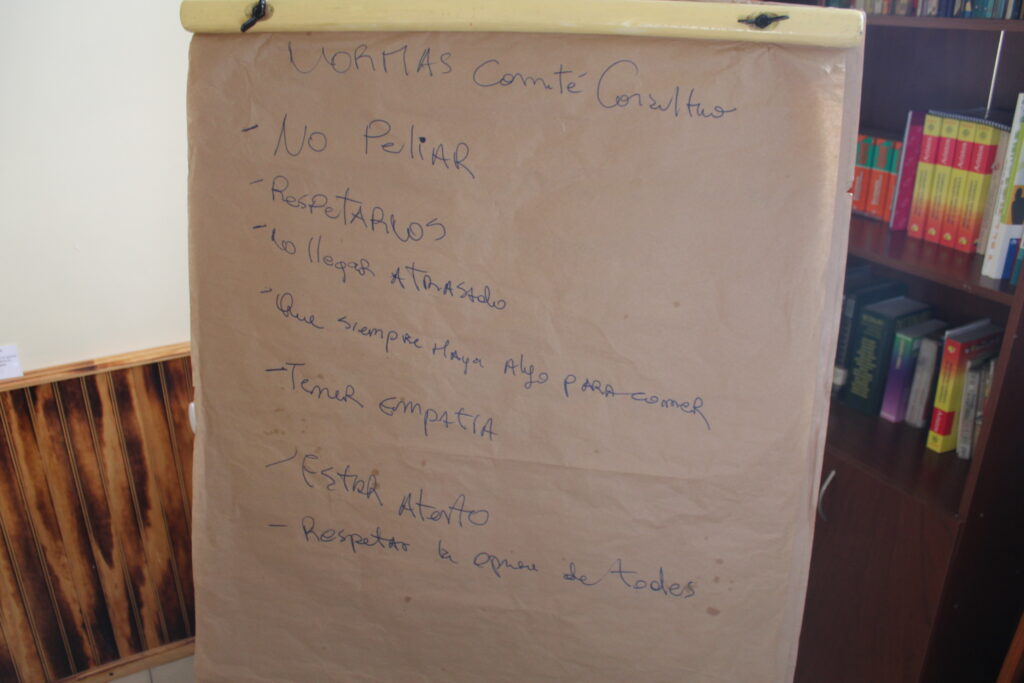 NORMAS Comité Consultivo
- No Peliar
- RespetarNos
- No llegar Atrasado
- Que siempre Haya Algo para comer
- Tener empatia
- Estar Atento
- Respetar la opinion de todes